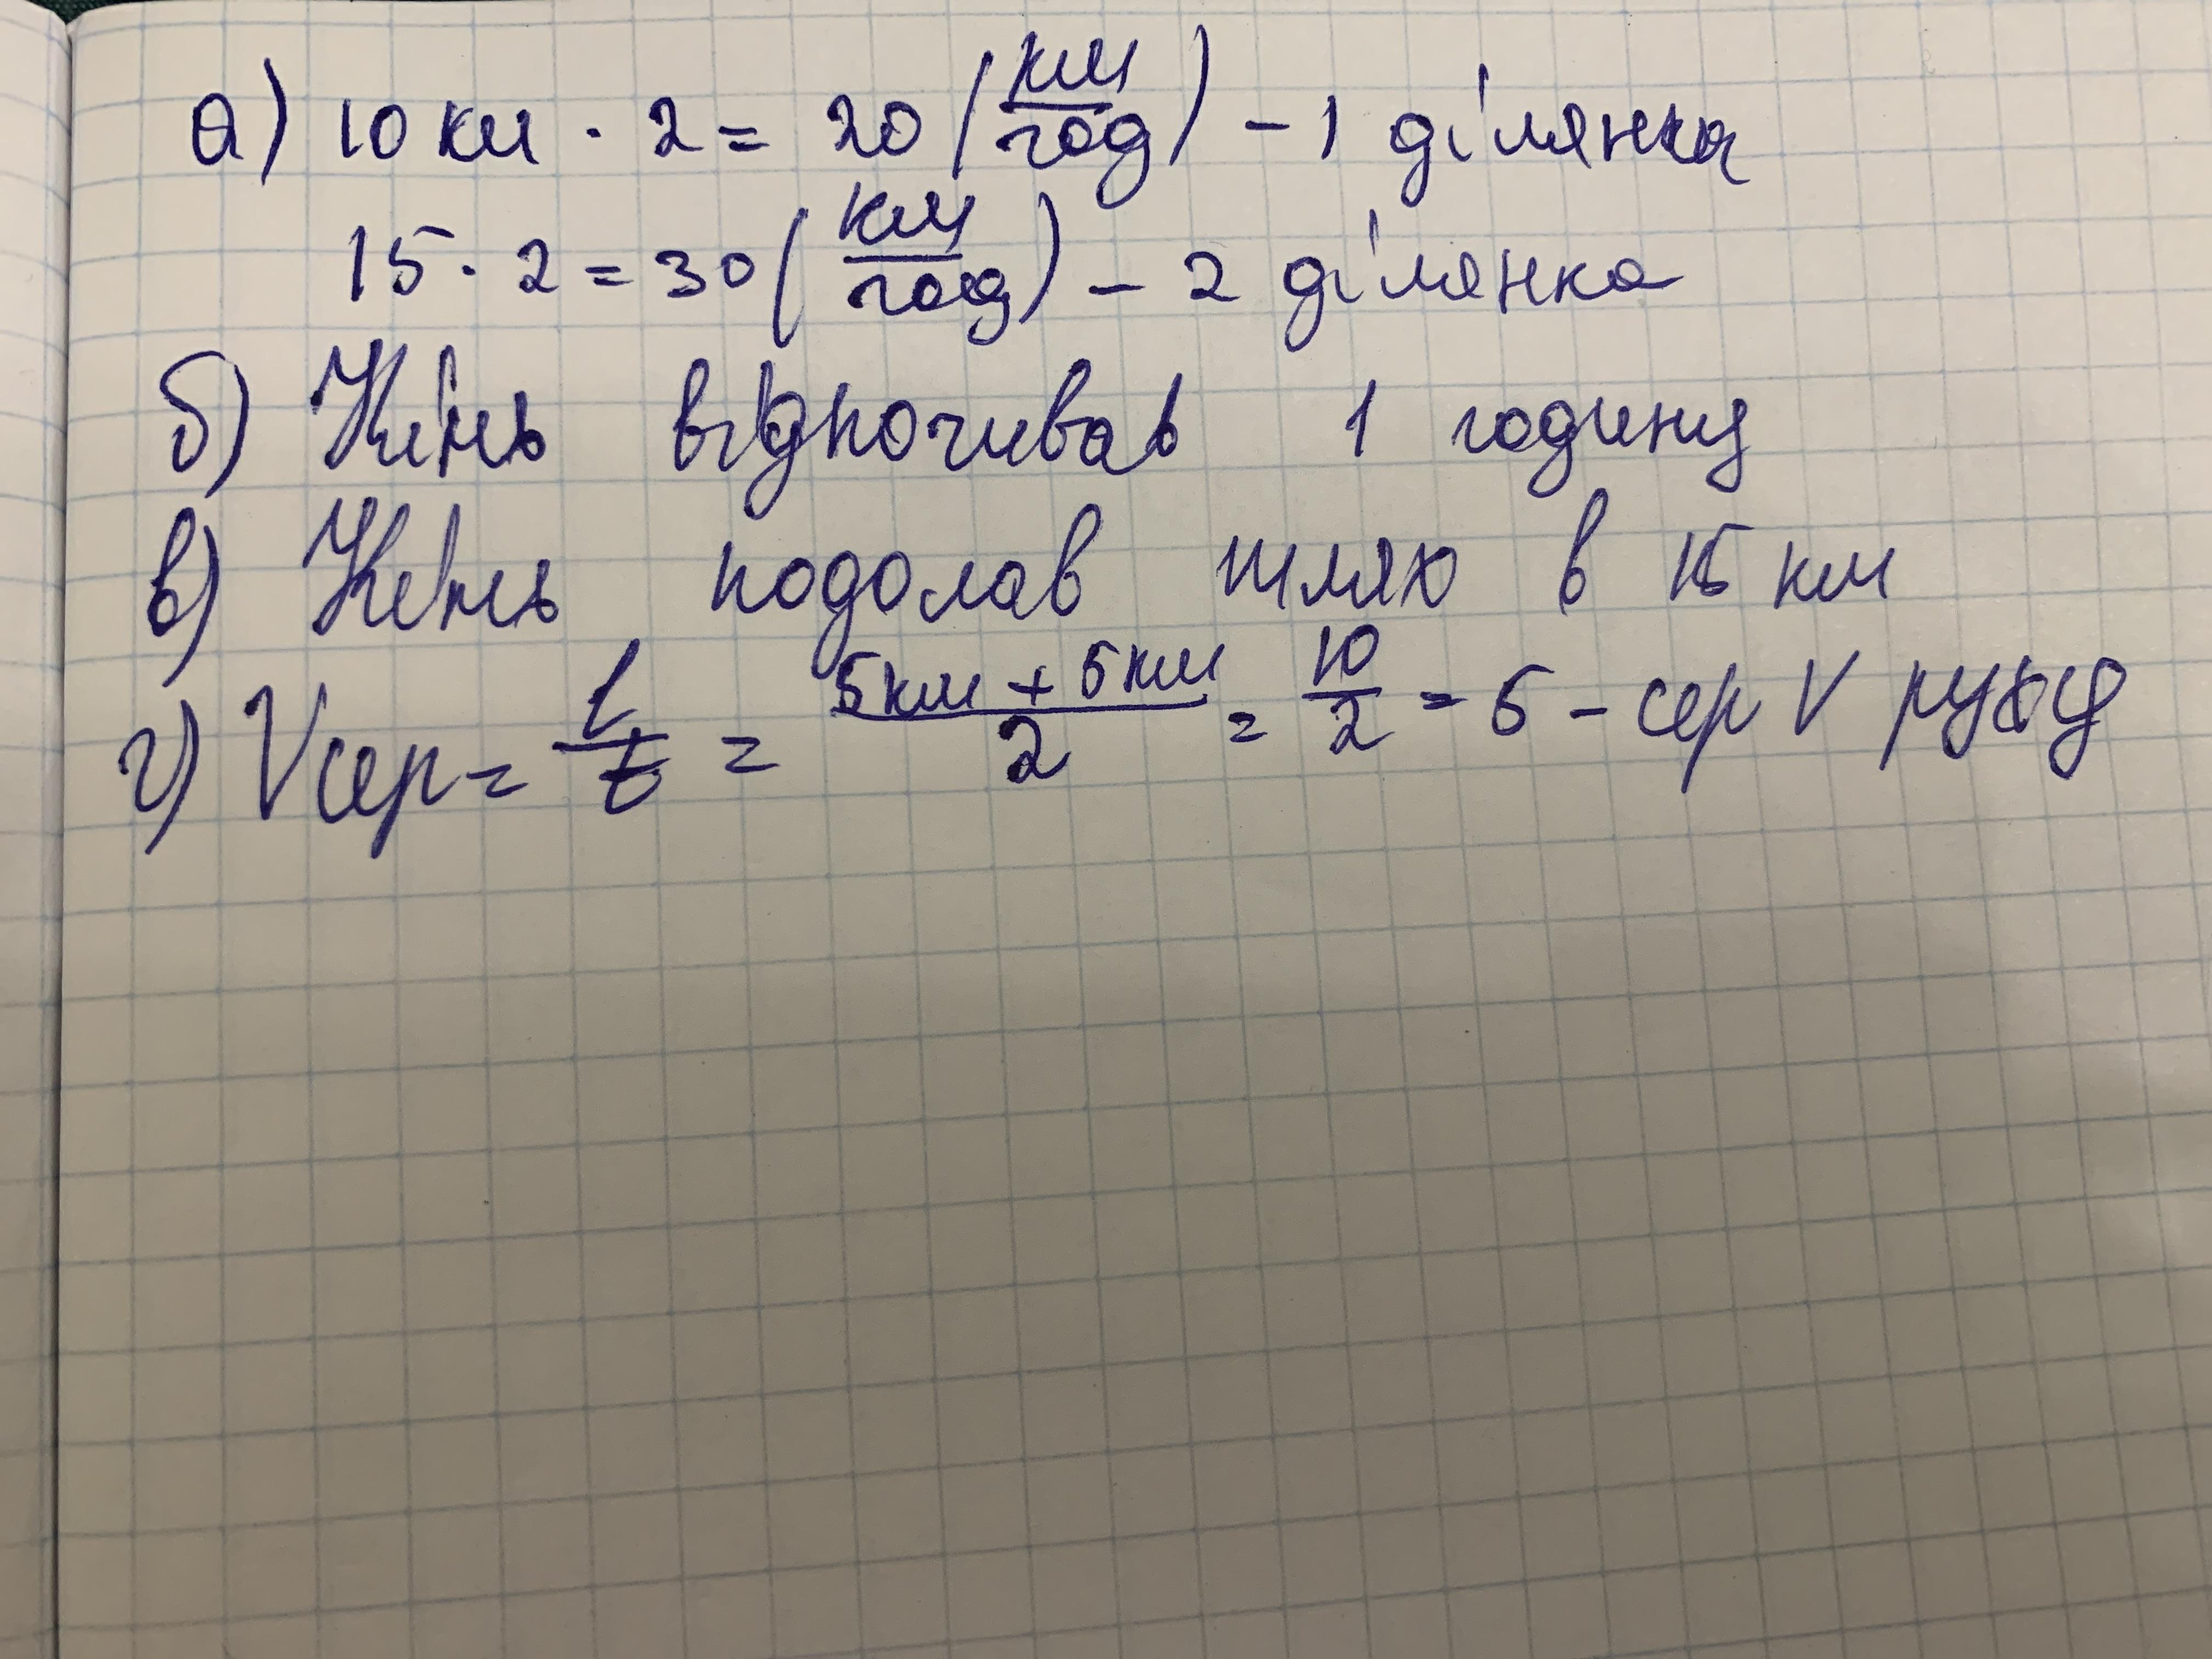 а) 10 км · 2 = 20 (км/год) – 1 ділянка
15 · 2 = 30 (км/год) – 2 ділянка
б) Кінь відпочивав 1 годину
в) Кінь подолав шлях в 15 км
г) Vсер = l/t = 5км + 5км/2 = 10/2 = 5 – сер V руху